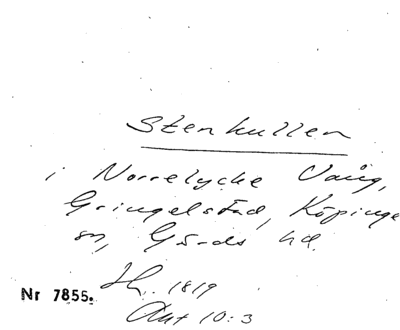 Stenkullen
i Norrelycke Vång,
Gringelstad, Köpinge
sn, Gärds hd.
Sk. 1819
Akt 10:3
Nr 7855.